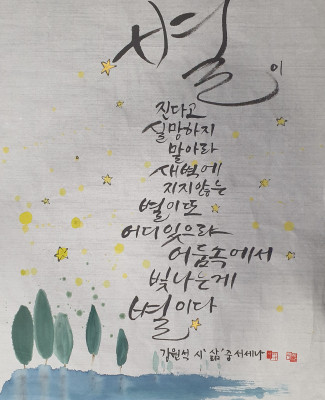 별이
진다고
실망하지
말아라
새벽에
지지않는
별이또
어디있으랴
어둠속에서
빛나는게
별이다
강원석 시 '삶' 중 서세나